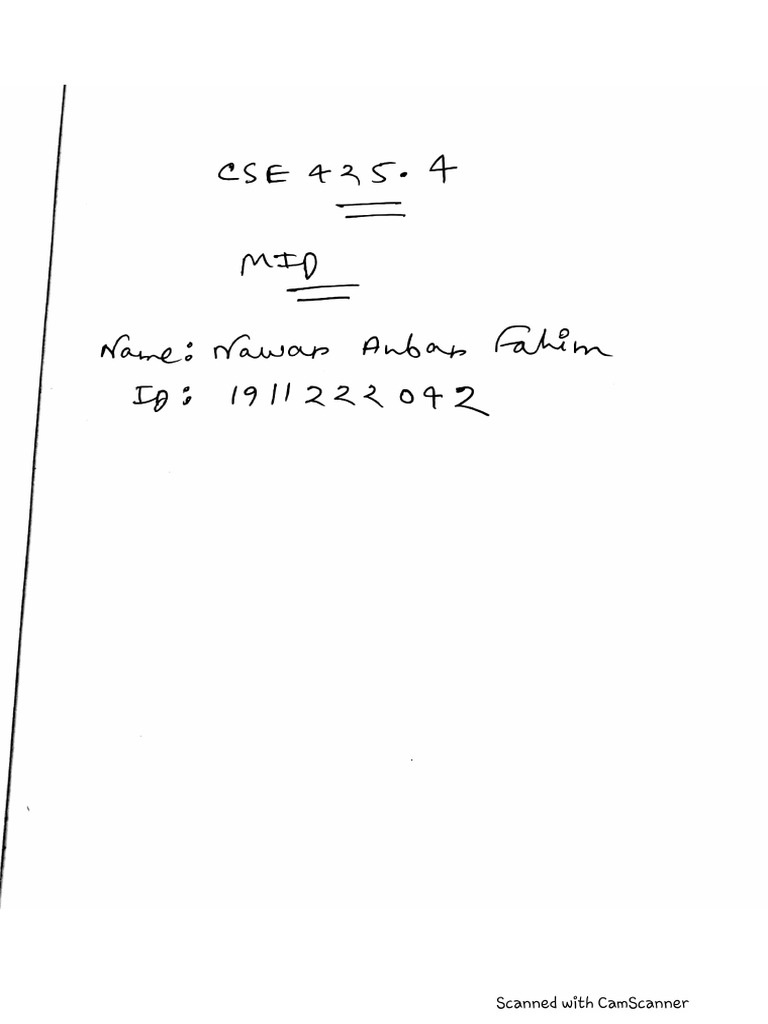 CSE 425.4
MID
Name: Nawar Anbar Fahim
ID: 1911222042
Scanned with CamScanner